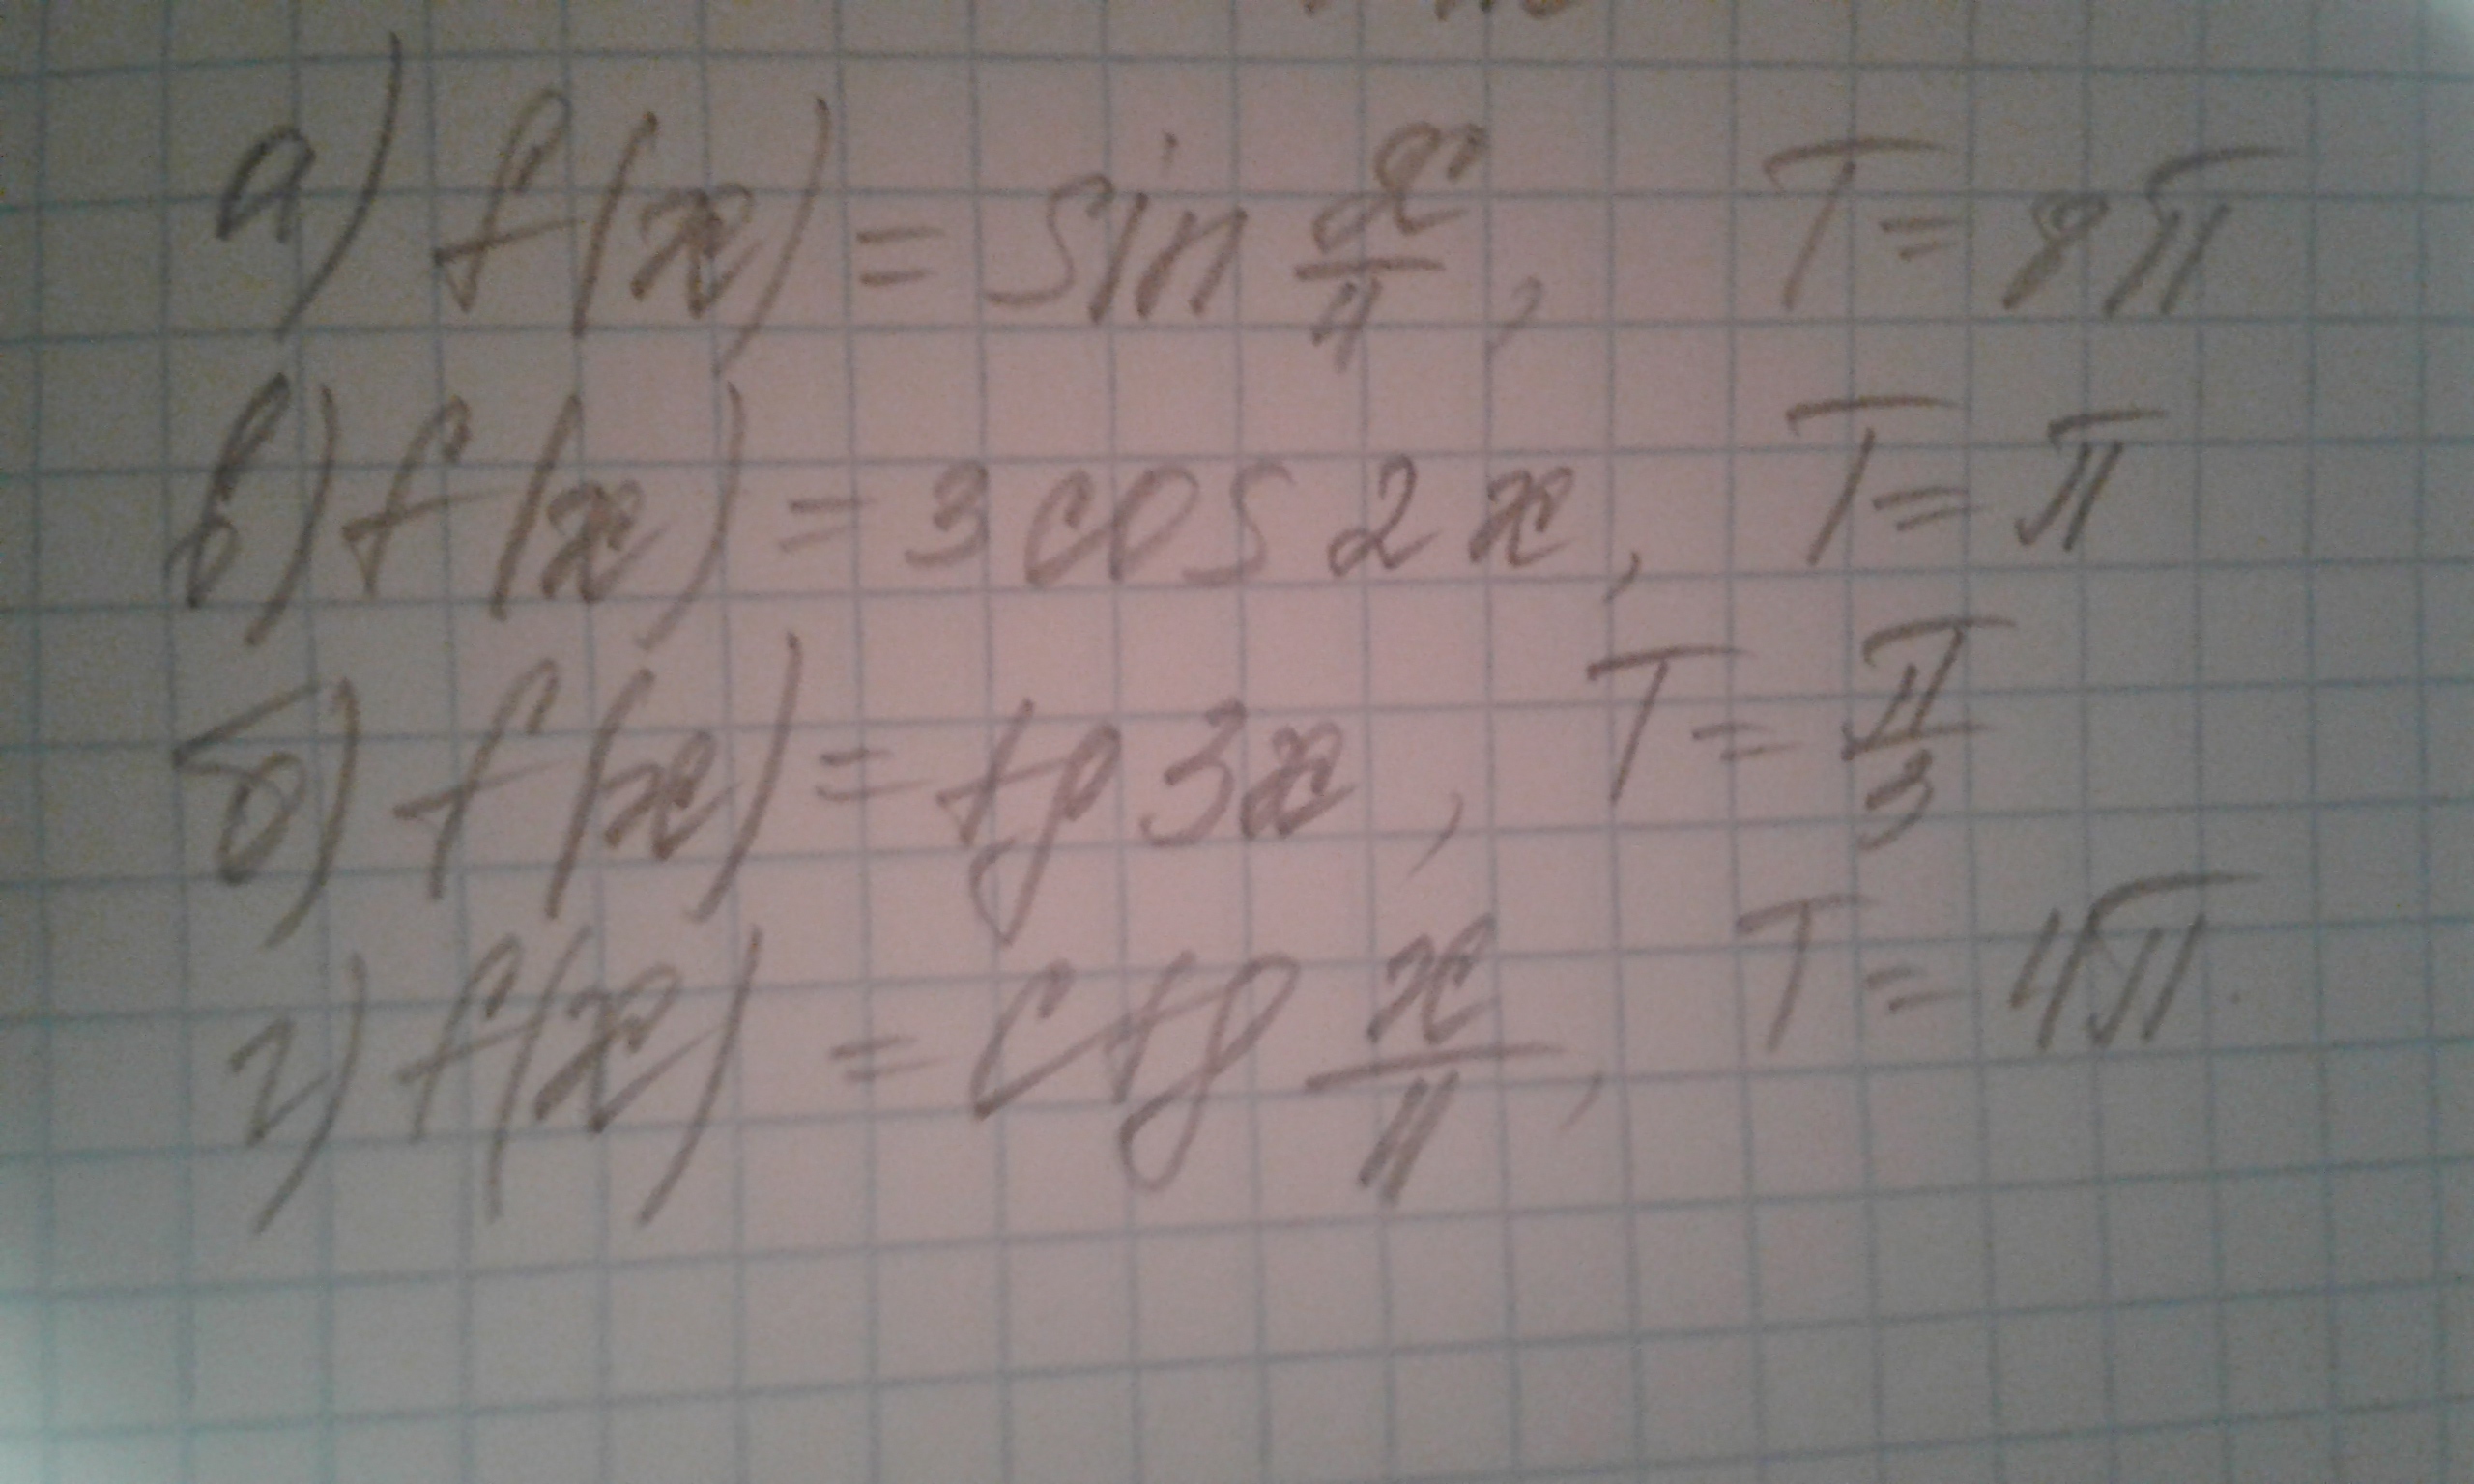 а) f(x) = sin x/4, T = 8π
в) f(x) = 3 cos 2x, T = π
б) f(x) = tg 3x, T = π/3
г) f(x) = ctg x/4, T = 4π.